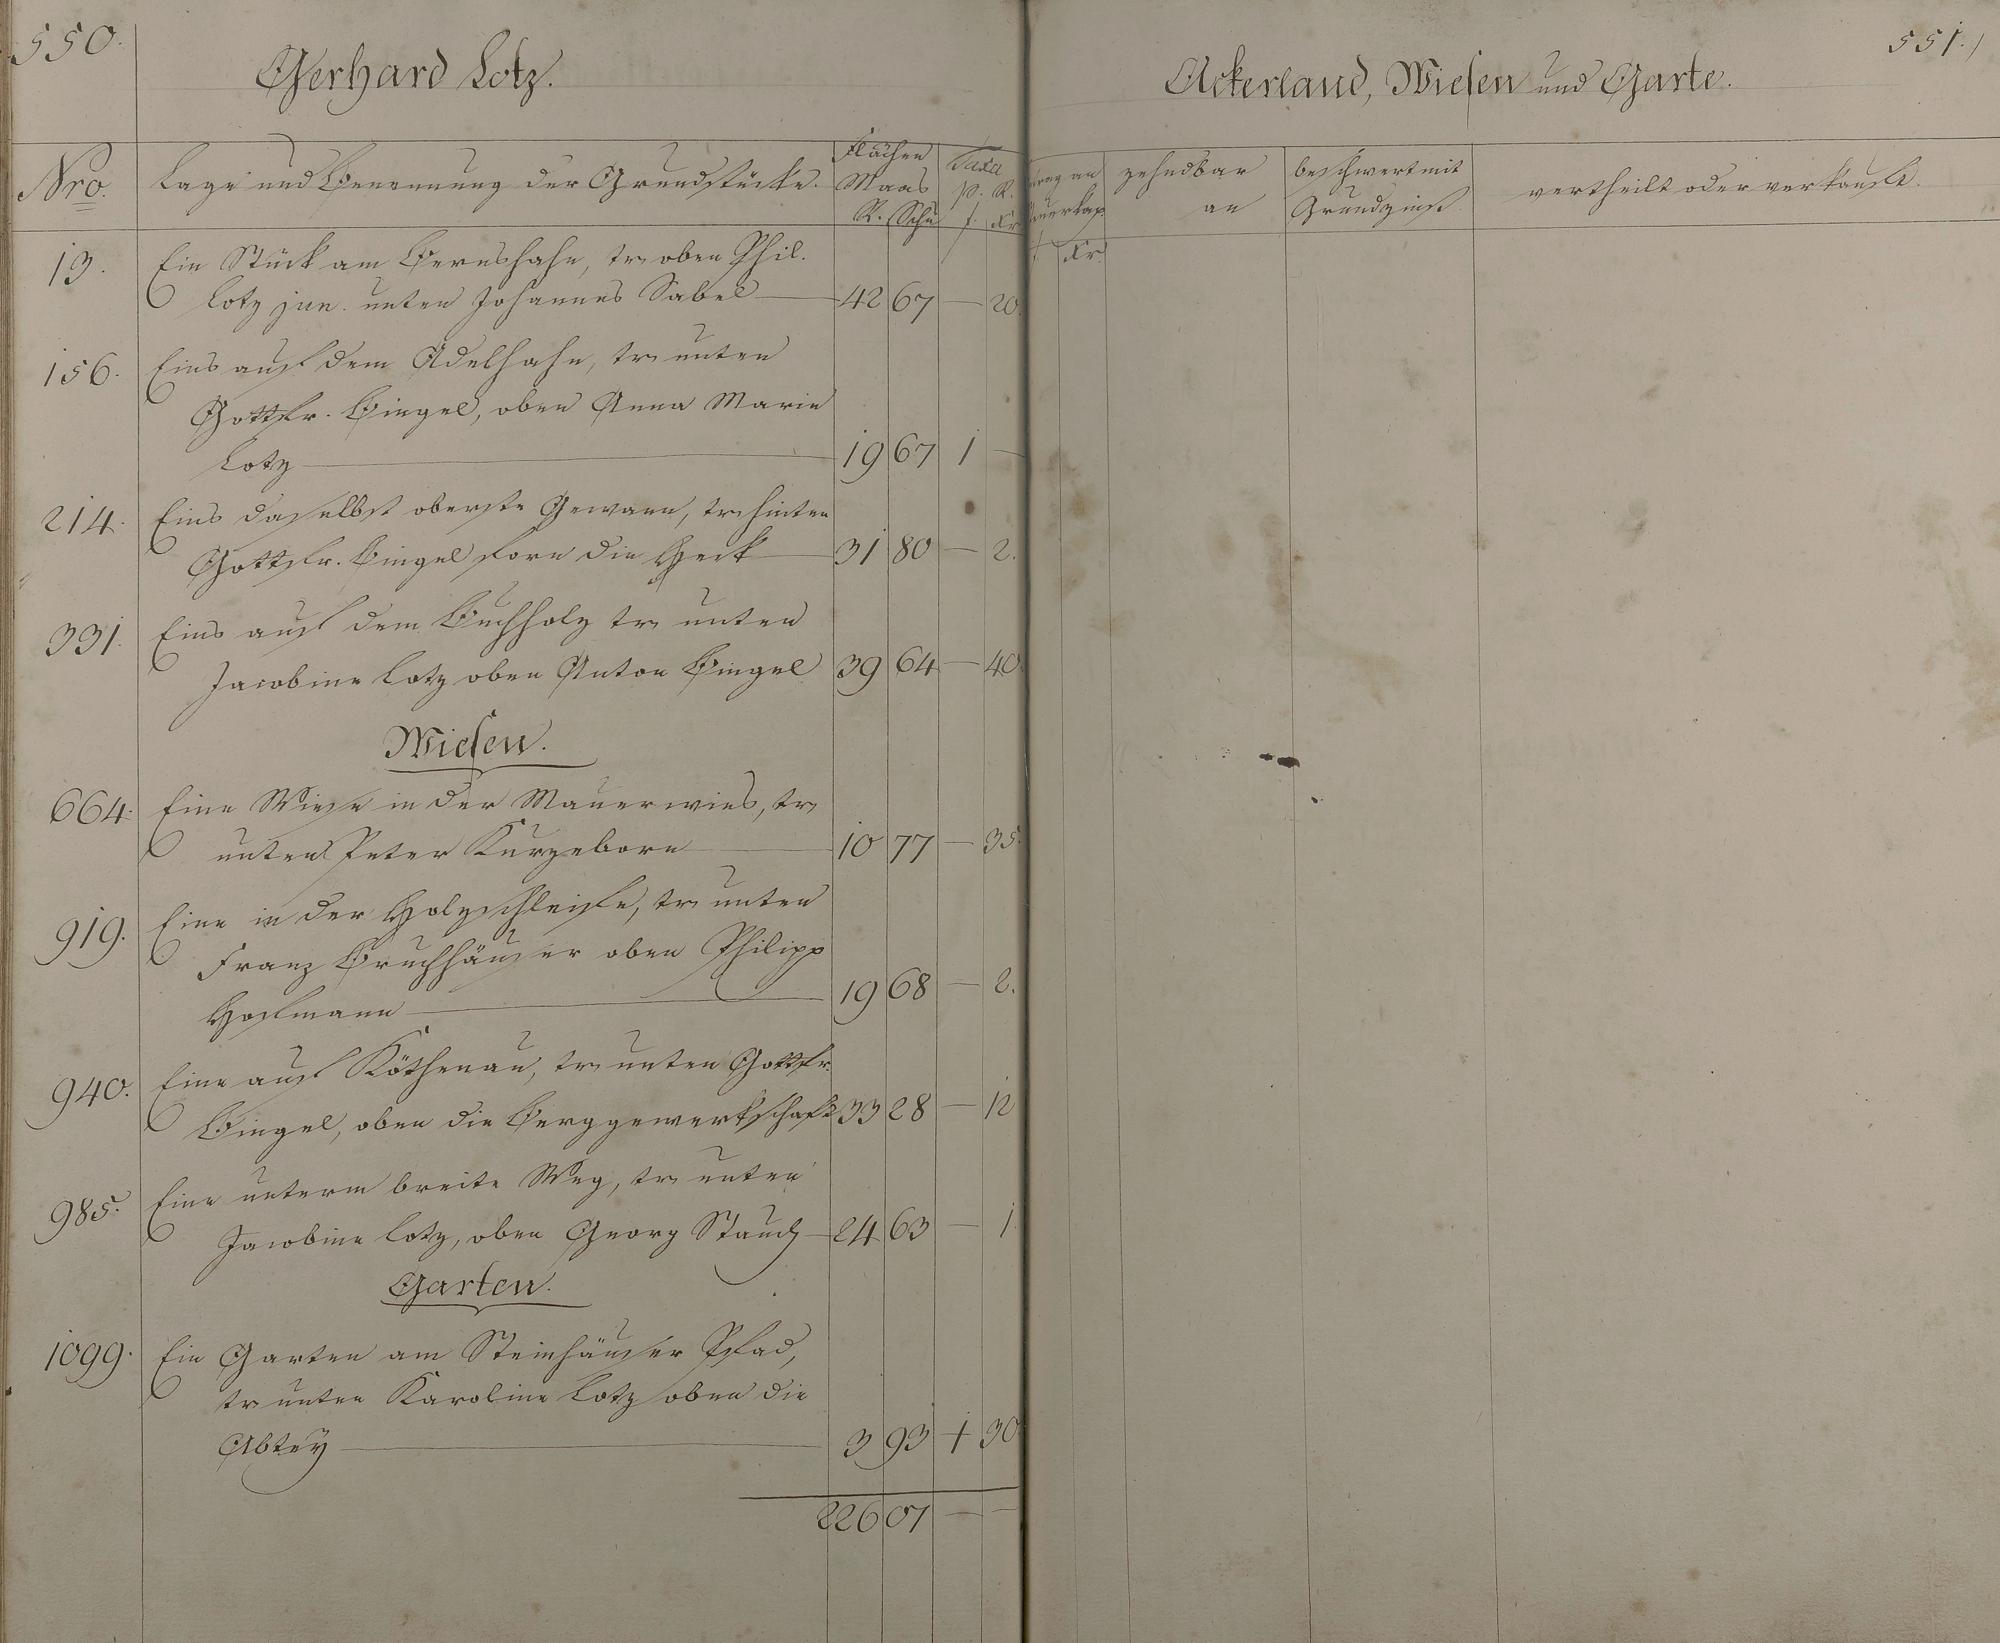 550.
Gerhard Lotz.
Nro.
Lage und Benennung der Grundstücke.
Flächen
Maas
R. Schu
Taxa
p. R.
f. Kr
13.
Ein Stück am Bernshahn, tr oben Phil.
Lotz jun. unten Johannes Sabel — 42 67 — 20.
156.
Eins auf dem Adelhahn, tr unten
Gottfr. Bingel, oben Anna Marie
Lotz — 19 67 1 —
214.
Eins daselbst oberste Gewann, tr hinten
Gottfr. Bingel forn die Heck — 31 80 — 2.
331.
Eins auf dem Buchholz tr unten
Jacobine Lotz oben Anton Bingel 39 64 — 40.
Wiesen.
664.
Eine Wiese in der Mauerwies, tr
unten Peter Kurzeborn — 10 77 — 35.
919.
Eine in der Holzschleife, tr unten
Franz Bruchhäuser oben Philipp
Hofmann — 19 68 — 2.
940.
Eine auf Köthenau, tr unten Gottfr.
Bingel, oben die Berggewerkschaft 33 28 — 12
985.
Eine unterm breite Weg, tr unten
Jacobine Lotz, oben Georg Staud — 24 63 — 1.
Garten.
1099.
Ein Garten am Steinhäuser Pfad,
tr unten Karoline Lotz oben die
Abtey — 3 93 1 30.
226 07 — —
551.
Ackerland, Wiesen und Garte.
an
f Kr.
zehndbar
an
beschwert mit
Grundzinß
vertheilt oder verkauft.